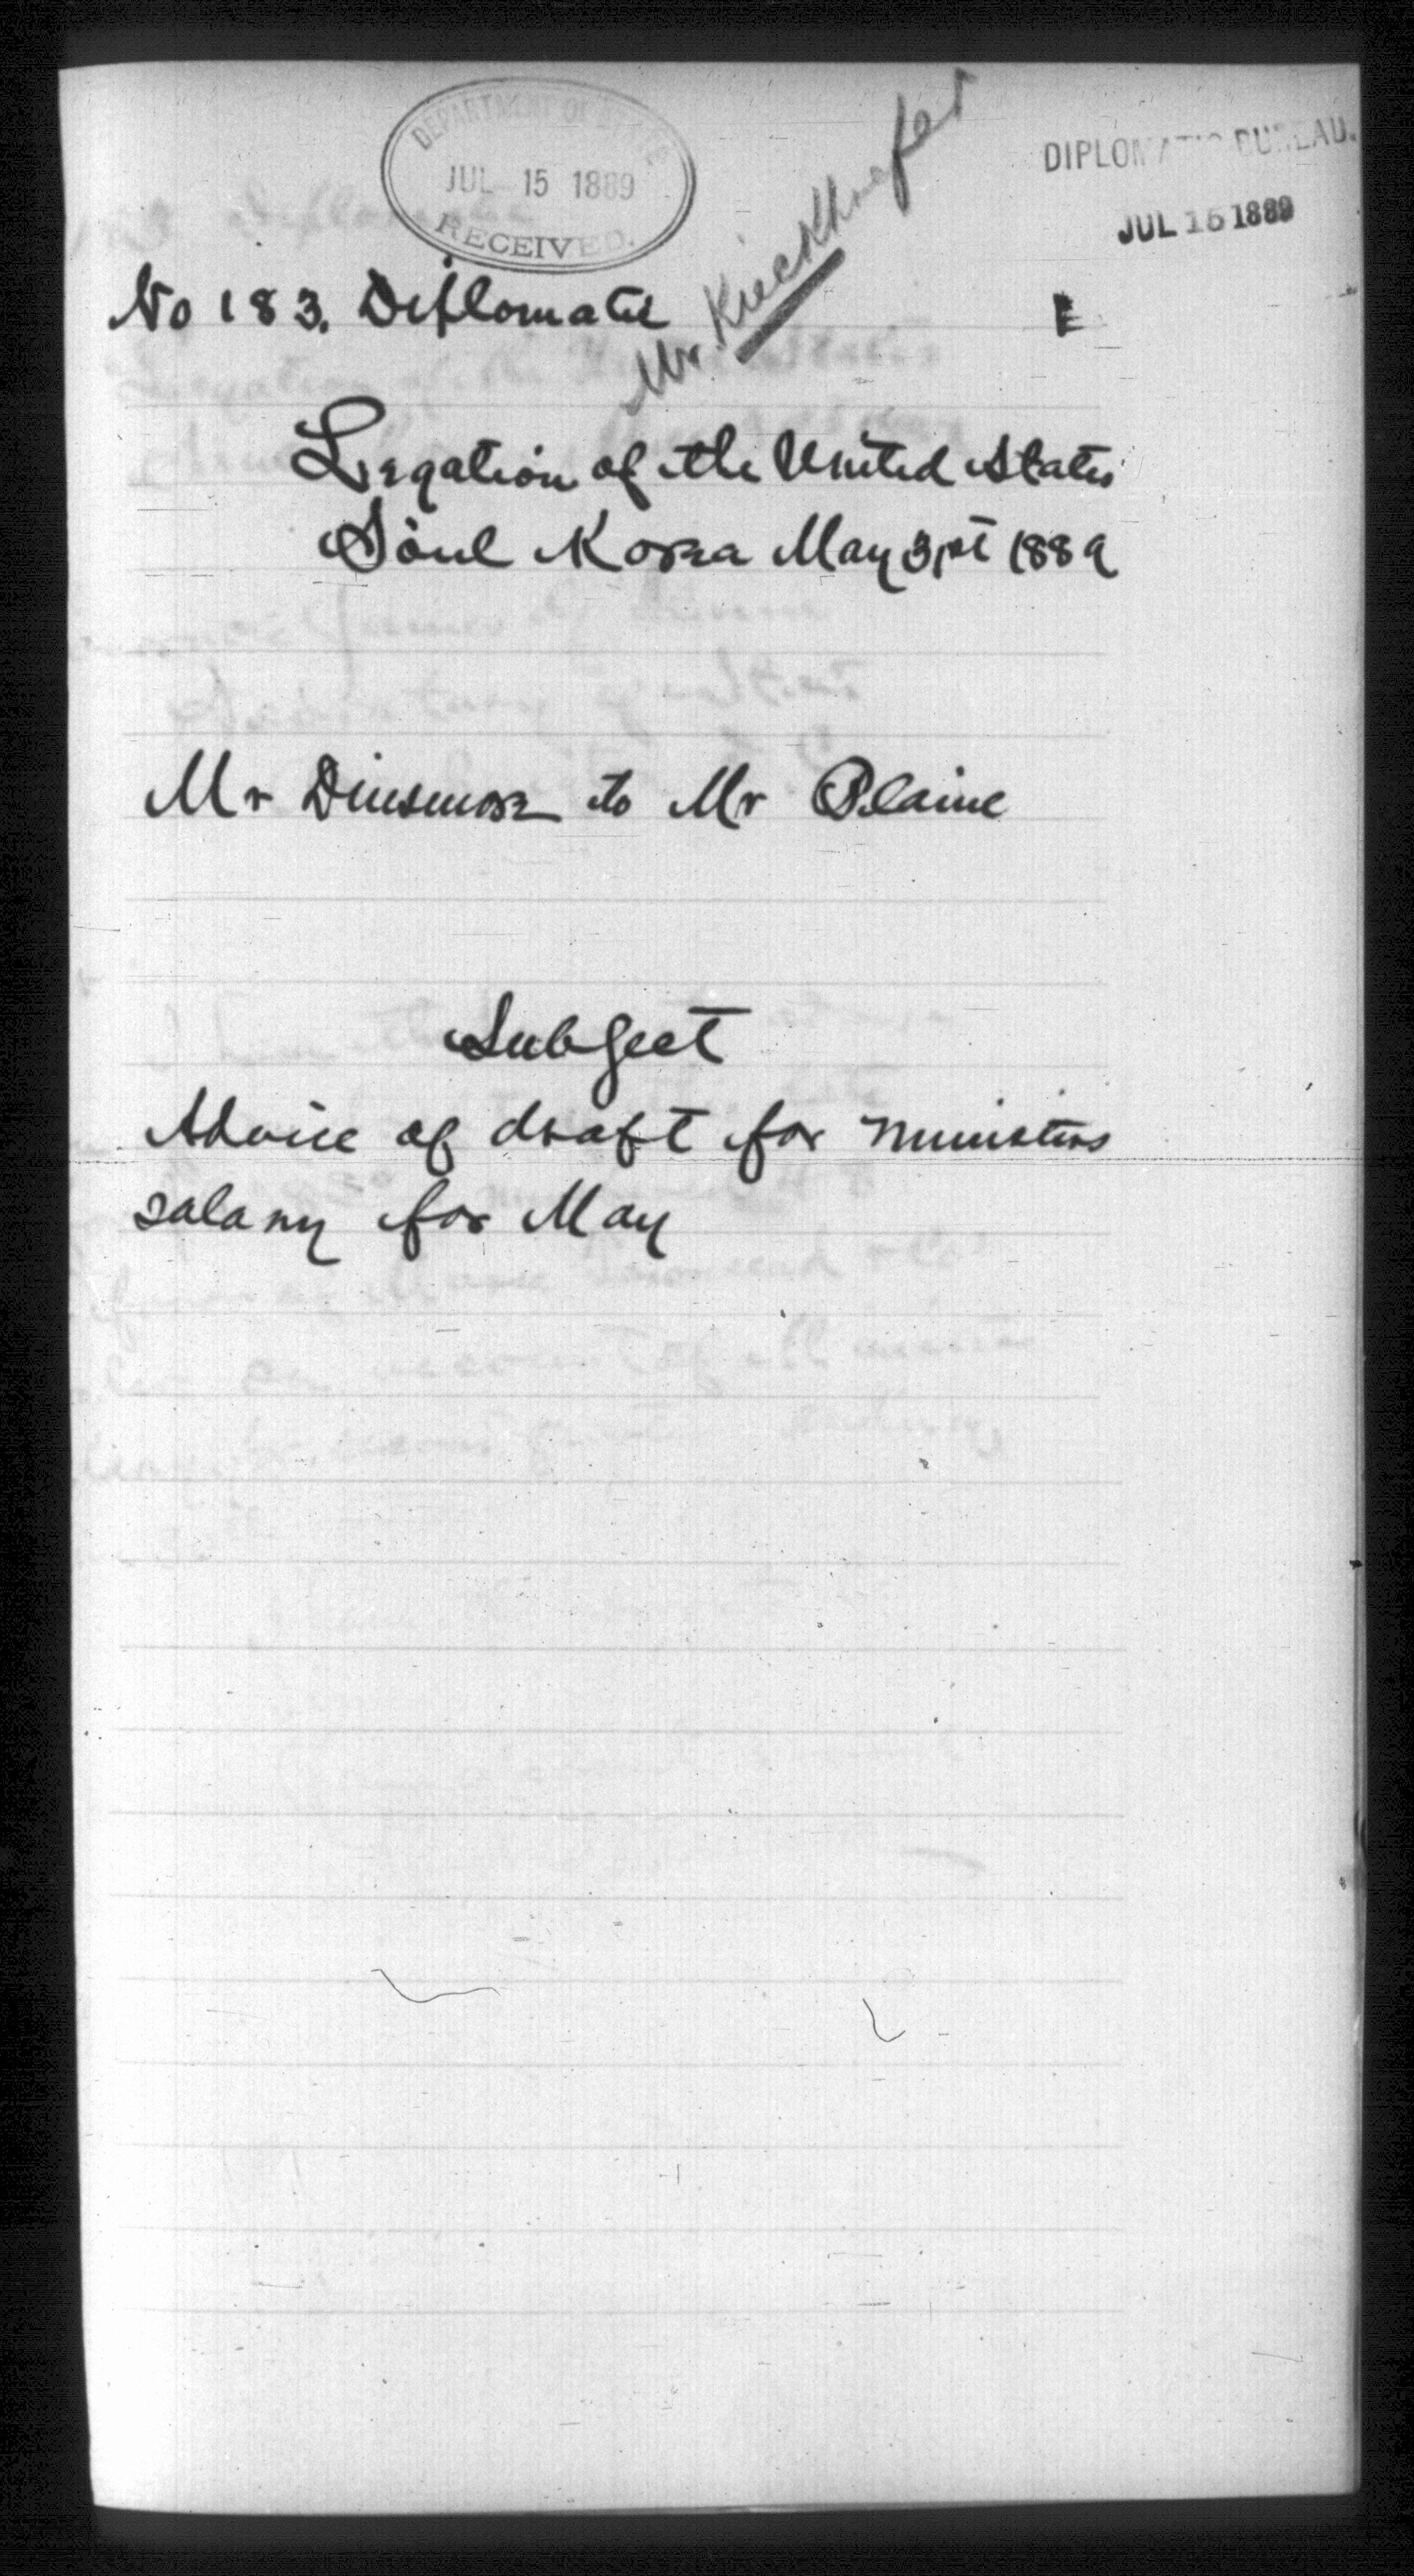 DEPARTMENT OF STATE
JUL 15 1889
RECEIVED.
DIPLOMATIC BUREAU.
JUL 15 1889
Mr. Kieckhoefer
No 183. Diplomatic
E
Legation of the United States
Söul Korea May 31st 1889
Mr Dinsmore to Mr Blaine
Subject
Advice of draft for ministers
salary for May